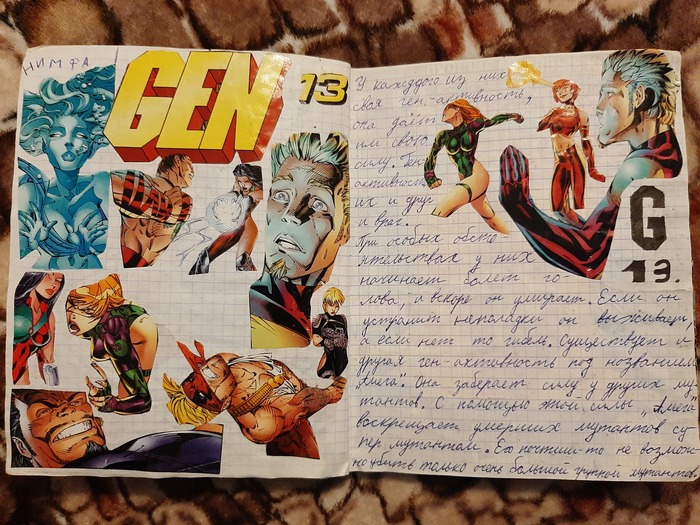 НИМФА
GEN
13
У каждого из них
своя ген-активность,
она даёт
им свою
силу. Ген
активность
их и друг
и враг.
При особых обсто
ятельствах у них
начинает болет го
лова, и вскоре он умирает. Если он
устранит неполадки он выживает
а если нет то гибель. Существует и
другая ген-активность под названием
"Амега". Она заберает силу у других му
тантов. С помощью этой силы „Амега"
воскрещает умерших мутантов су-
пер мутантом. Его почтишто не возмож-
но убить только очень большой групой мутантов
G
13.